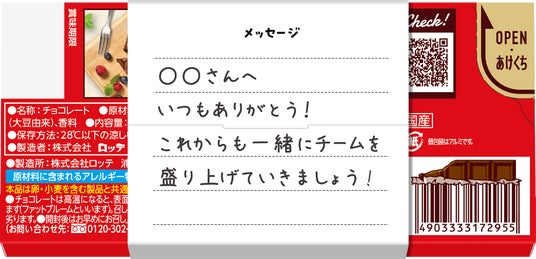 賞味期限
メッセージ
〇〇さんへ
いつもありがとう!
これからも一緒にチームを
盛り上げていきましょう!
●名称:チョコレート ●原材
(大豆由来)、香料 ●内容量:
●保存方法:28℃以下の涼しい
●製造者:株式会社 ロッテ
●製造所:株式会社ロッテ 浦
原材料に含まれるアレルギー物
本品は卵・小麦を含む製品と共通
●チョコレートは高温になると、表面
ます(ファットブルームといいます)。召し
劣ります。●開封後はお早めにお召し
(お問い合わせ先: 0120-302-
Check!
OPEN
・
あけくち
国産
紙
個包装はアルミです。
4903333172955